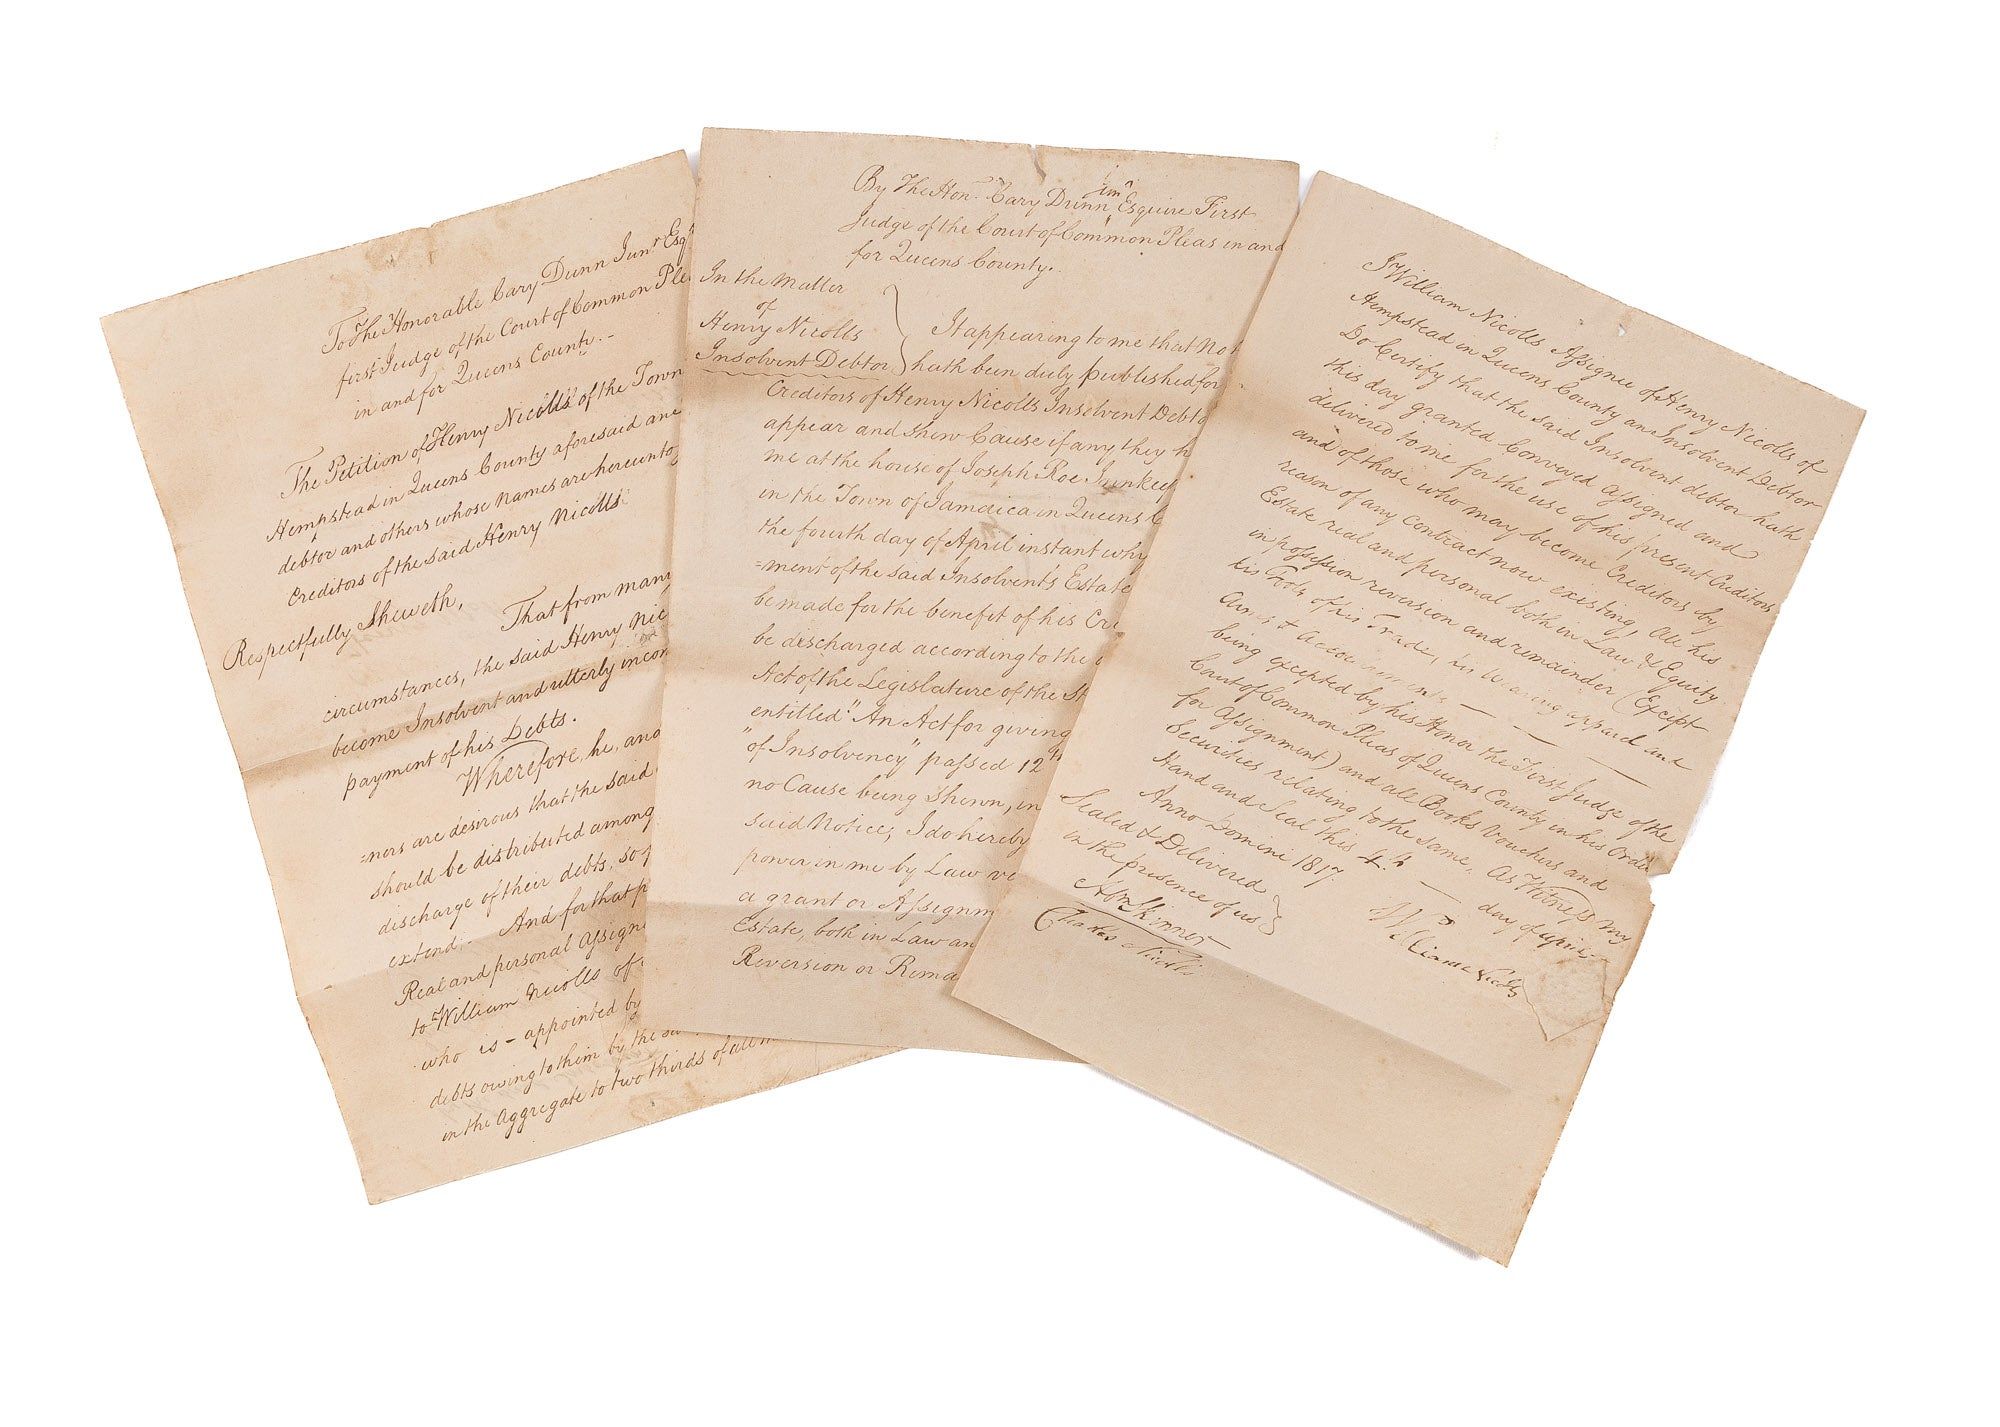 To The Honorable Cary Dunn Junr Esqr
first Judge of the Court of Common Ple
in and for Queens County.-
The Petition of Henry Nicolls of the Town
Hempstead in Queens County aforesaid an
debtor and others whose Names are hereunto
Creditors of the said Henry Nicolls
Respectfully Sheweth,
That from many
circumstances, the said Henry Nic
become Insolvent and utterly incom
payment of his Debts.
Wherefore, he, and
=ners are desirous that the said
should be distributed among
discharge of their debts, so f
extend. - And for that p
Real and personal Assigne
to William Nicolls of
who is - appointed by
debts owing to them by the sa
in the Aggregate to two thirds of all
By The Honl. Cary Dunn Junr Esquire First
Judge of the Court of Common Pleas in and
for Queens County.
In the Matter
of
Henry Nicolls
Insolvent Debtor
It appearing to me that Not
hath been duly published for
Creditors of Henry Nicolls Insolvent Debto
appear and shew Cause if any they h
me at the house of Joseph Roe Innkeep
in the Town of Jamaica in Queens C
the fourth day of April instant why
=ment of the said Insolvent's Estate
be made for the benefit of his Cre
be discharged according to the
Act of the Legislature of the St
entitled "An Act for giving
"of Insolvency" passed 12th
no Cause being Shewn, in
said Notice, I do hereby
power in me by Law ve
a grant or Assignm
Estate, both in Law an
Reversion or Rema
I William Nicolls Assignee of Henry Nicolls of
Hempstead in Queens County an Insolvent Debtor
Do Certify that the said Insolvent debtor hath
this day granted Conveyed Assigned and
delivered to me for the use of his present Creditors
and of those who may become Creditors by
reason of any Contract now existing, All his
Estate real and personal both in Law & Equity
in possession reversion and remainder (Except
his Tools of his Trade, his Wearing apparel and
Arms & Accoutrements — — —
being excepted by his Honor the First Judge of the
Court of Common Pleas of Queens County in his Order
for Assignment) and all Books Vouchers and
Securities relating to the same. As Witness my
Hand and Seal this 4th — day of April
Anno Domini 1817.
Sealed & Delivered
in the presence of us
William Nicolls
Abm Skinner
Charles Nicolls